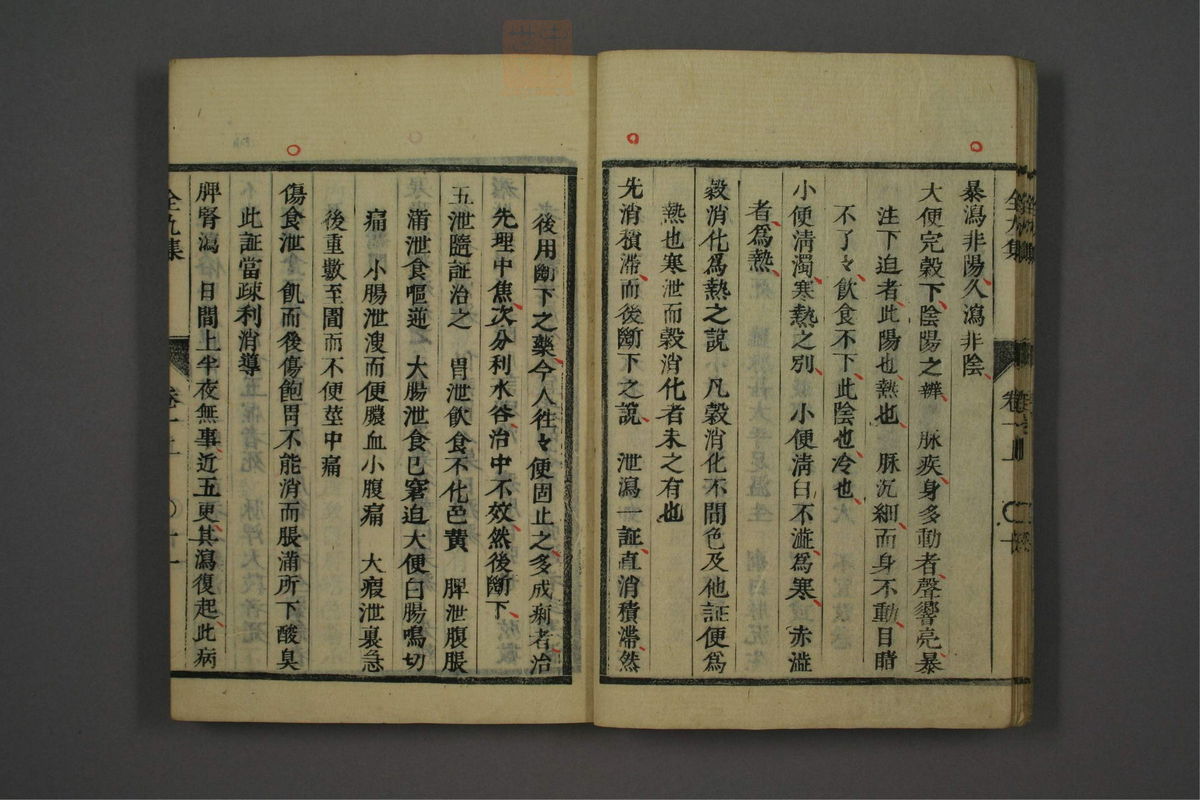 暴瀉非陽久瀉非陰
大便完穀下陰陽之辨 脉疾身多動者聲響亮暴
注下迫者此陽也熱也 脉沉細而身不動目睛
不了々飲食不下此陰也冷也
小便淸濁寒熱之別 小便淸白不澁爲寒 赤澁
者爲熱
穀消化爲熱之說 凡穀消化不問色及他証便爲
熱也寒泄而穀消化者未之有也
先消積滯而後斷下之說 泄瀉一証直消積滯然
後用斷下之藥今人往々便固止之多成痢者治
先理中焦次分利水谷治中不效然後斷下
五泄隨証治之 胃泄飮食不化色黃 脾泄腹脹
滿泄食嘔逆 大腸泄食已窘迫大便白腸鳴切
痛 小腸泄溲而便膿血小腹痛 大瘕泄裏急
後重數至圊而不便莖中痛
傷食泄 飢而後傷飽胃不能消而脹滿所下酸臭
此証當疎利消導
脾腎瀉 日間上半夜無事近五更其瀉復起此病
全九集
卷